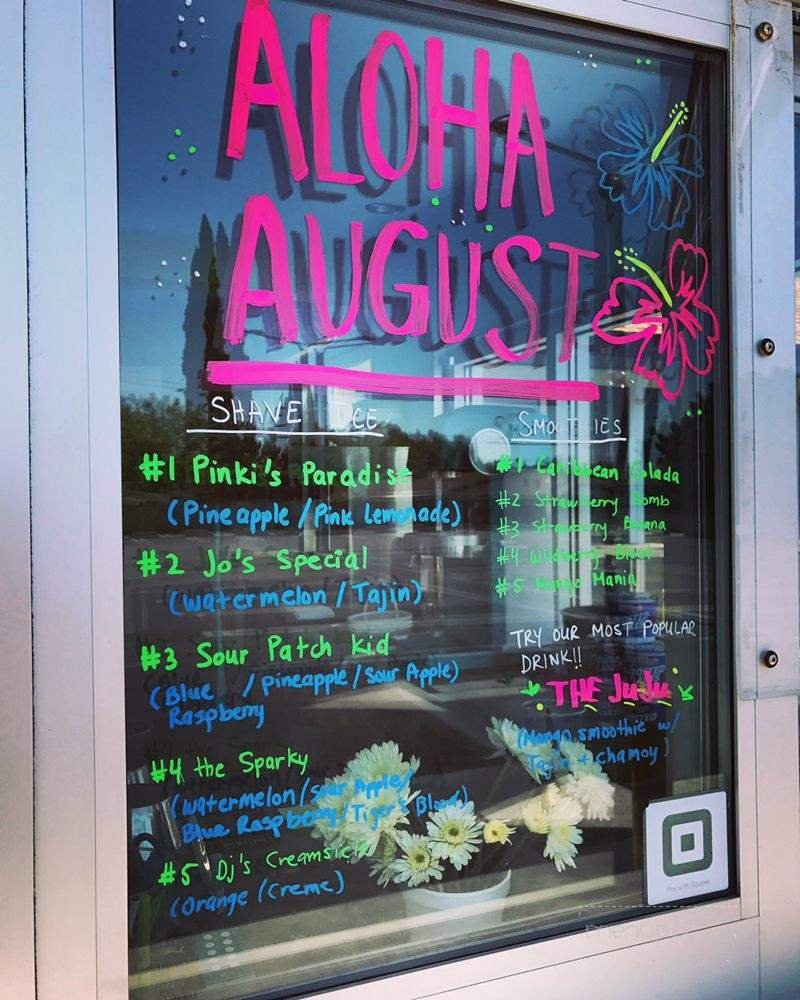 ALOHA
AUGUST
SHAVE ICE
#1 Pinki's Paradise
(Pineapple / Pink Lemonade)
#2 Jo's Special
(watermelon / Tajin)
#3 Sour Patch Kid
(Blue / Pineapple / Sour Apple)
Raspberry
#4 the Sparky
(watermelon / sour Apple /
Blue Raspberry / Tiger's Blood)
#5 Dj's Creamsicle
(orange / creme)
SMOOTHIES
#1 Caribbean Colada
#2 Strawberry Bomb
#3 Strawberry Banana
#4 Wildberry
#5 Mango Mania
TRY OUR MOST POPULAR
DRINK!!
THE JuJu
(Mango smoothie w/
Tajin + chamoy)
Pay with Square